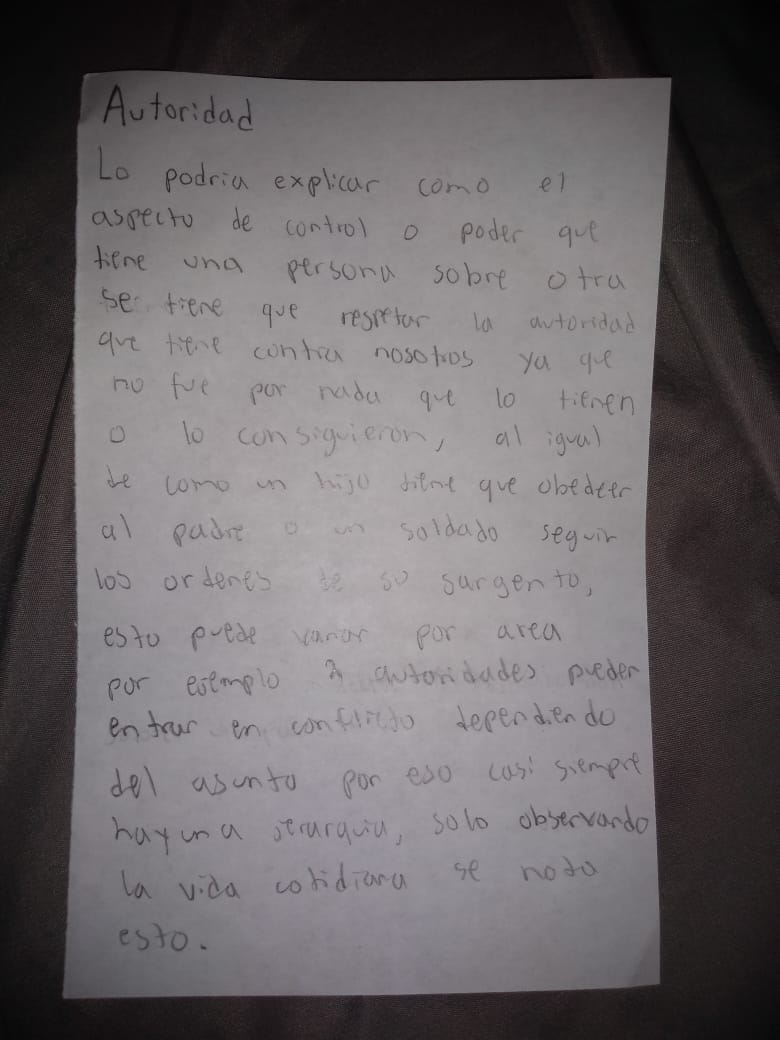 Autoridad
Lo podria explicar como el
aspecto de control o poder que
tiene una persona sobre otra
se tiene que respetar la autoridad
que tiene contra nosotros ya que
no fue por nada que lo tienen
o lo consiguieron, al igual
de como un hijo tiene que obedecer
al padre o un soldado seguir
los ordenes de su sargento,
esto puede variar por area
por ejemplo 3 autoridades pueden
entrar en conflicto dependiendo
del asunto por eso casi siempre
hay una jerarquia, solo observando
la vida cotidiana se nota
esto.